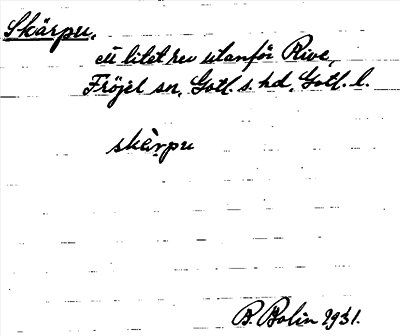 Skärpu,
ett litet rev utanför Rive,
Fröjel sn, Gotl. s. hd, Gotl. l.
skärpu
B. Bolin 1931.